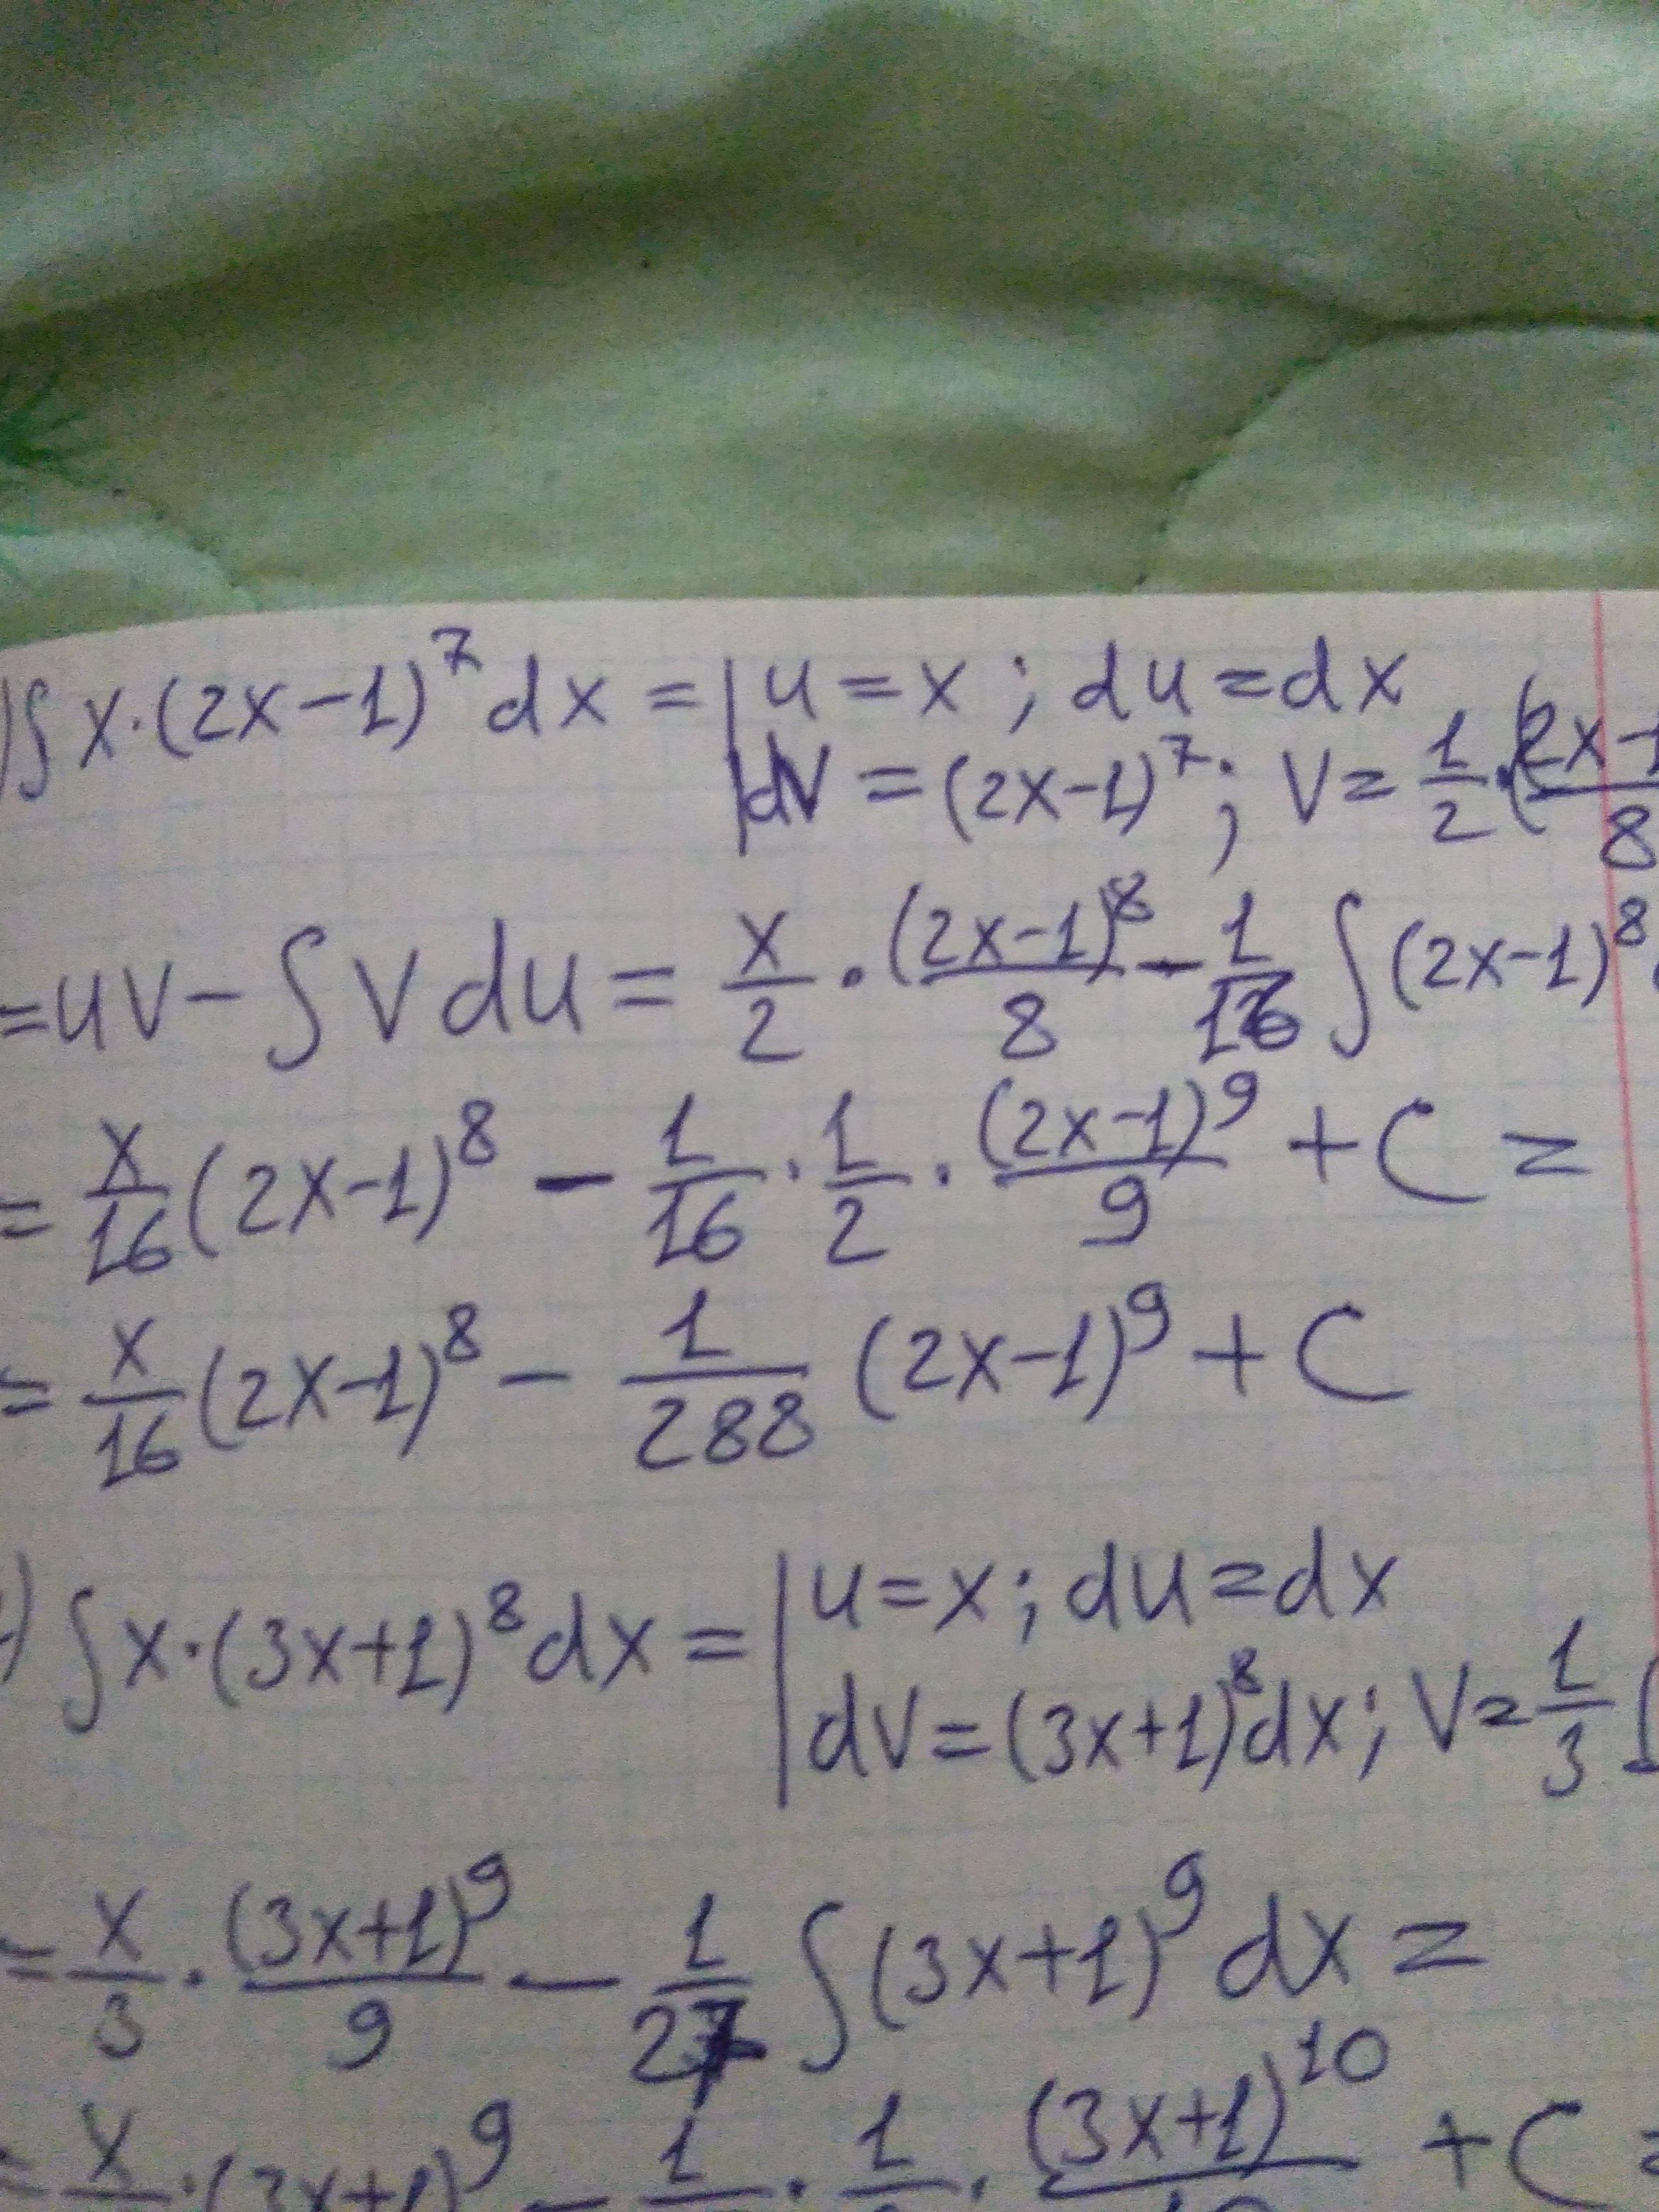 ) ∫ x·(2x-1)⁷ dx = | u = x ; du = dx
| dv = (2x-1)⁷ ; v = 1/2 · (2x-1/8
= uv - ∫ v du = x/2 · (2x-1)⁸/8 - 1/16 ∫ (2x-1)⁸
= x/16 (2x-1)⁸ - 1/16 · 1/2 · (2x-1)⁹/9 + C =
= x/16 (2x-1)⁸ - 1/288 (2x-1)⁹ + C
) ∫ x·(3x+1)⁸ dx = | u = x ; du = dx
| dv = (3x+1)⁸ dx ; v = 1/3
= x/3 · (3x+1)⁹/9 - 1/27 ∫ (3x+1)⁹ dx =
= x · (3x+1)⁹ - 1 · 1 · (3x+1)¹⁰/10 + C =